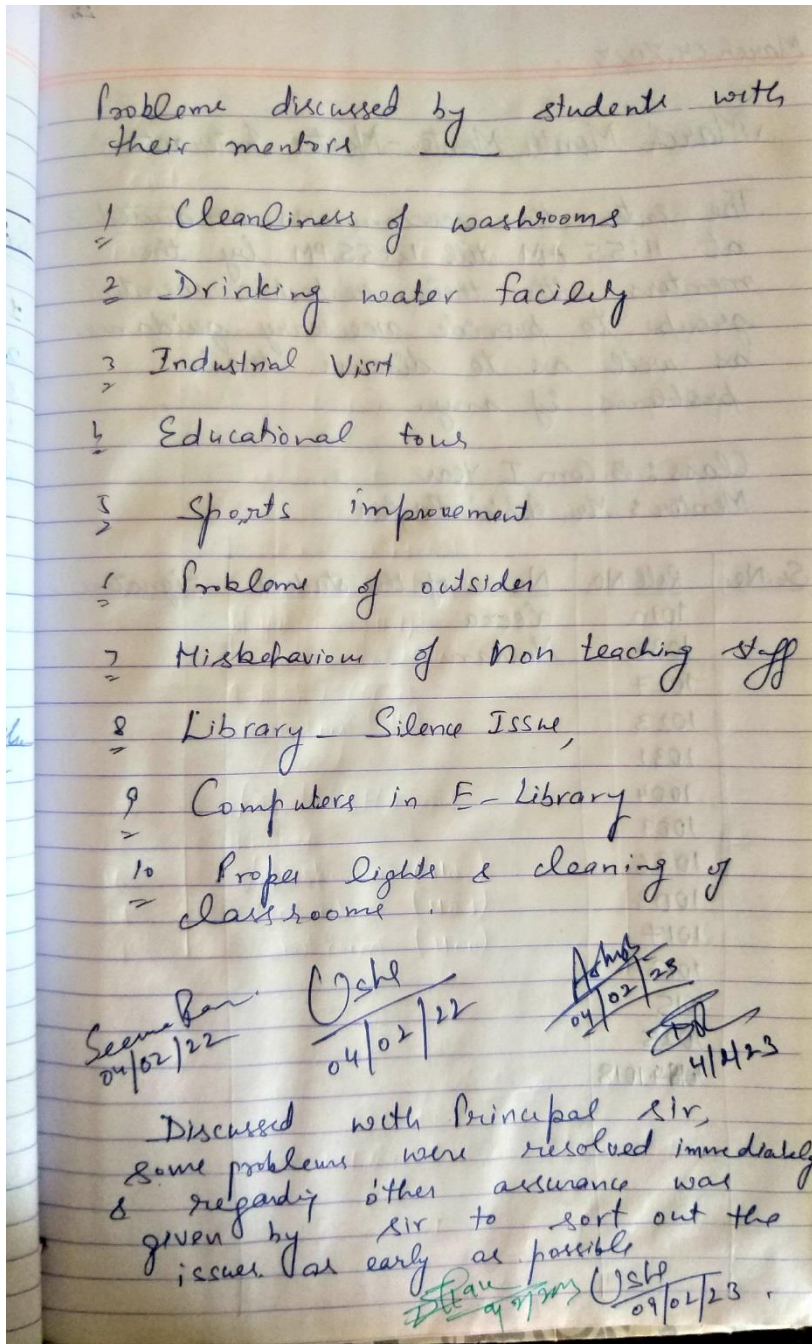 Problems discussed by students with
their mentors
1 Cleanliness of washrooms
2 Drinking water facility
3 Industrial Visit
4 Educational tour
5 Sports improvement
6 Problems of outsider
7 Misbehaviour of Non teaching staff
8 Library - Silence Issue,
9 Computers in E-Library
10 Proper lights & cleaning of
classrooms.
04/02/22 Usha 04/02/22 Ashok 04/02/23
4/2/23
Discussed with Principal Sir,
some problems were resolved immediately
& regarding other assurance was
given by sir to sort out the
issues as early as possible
Usha